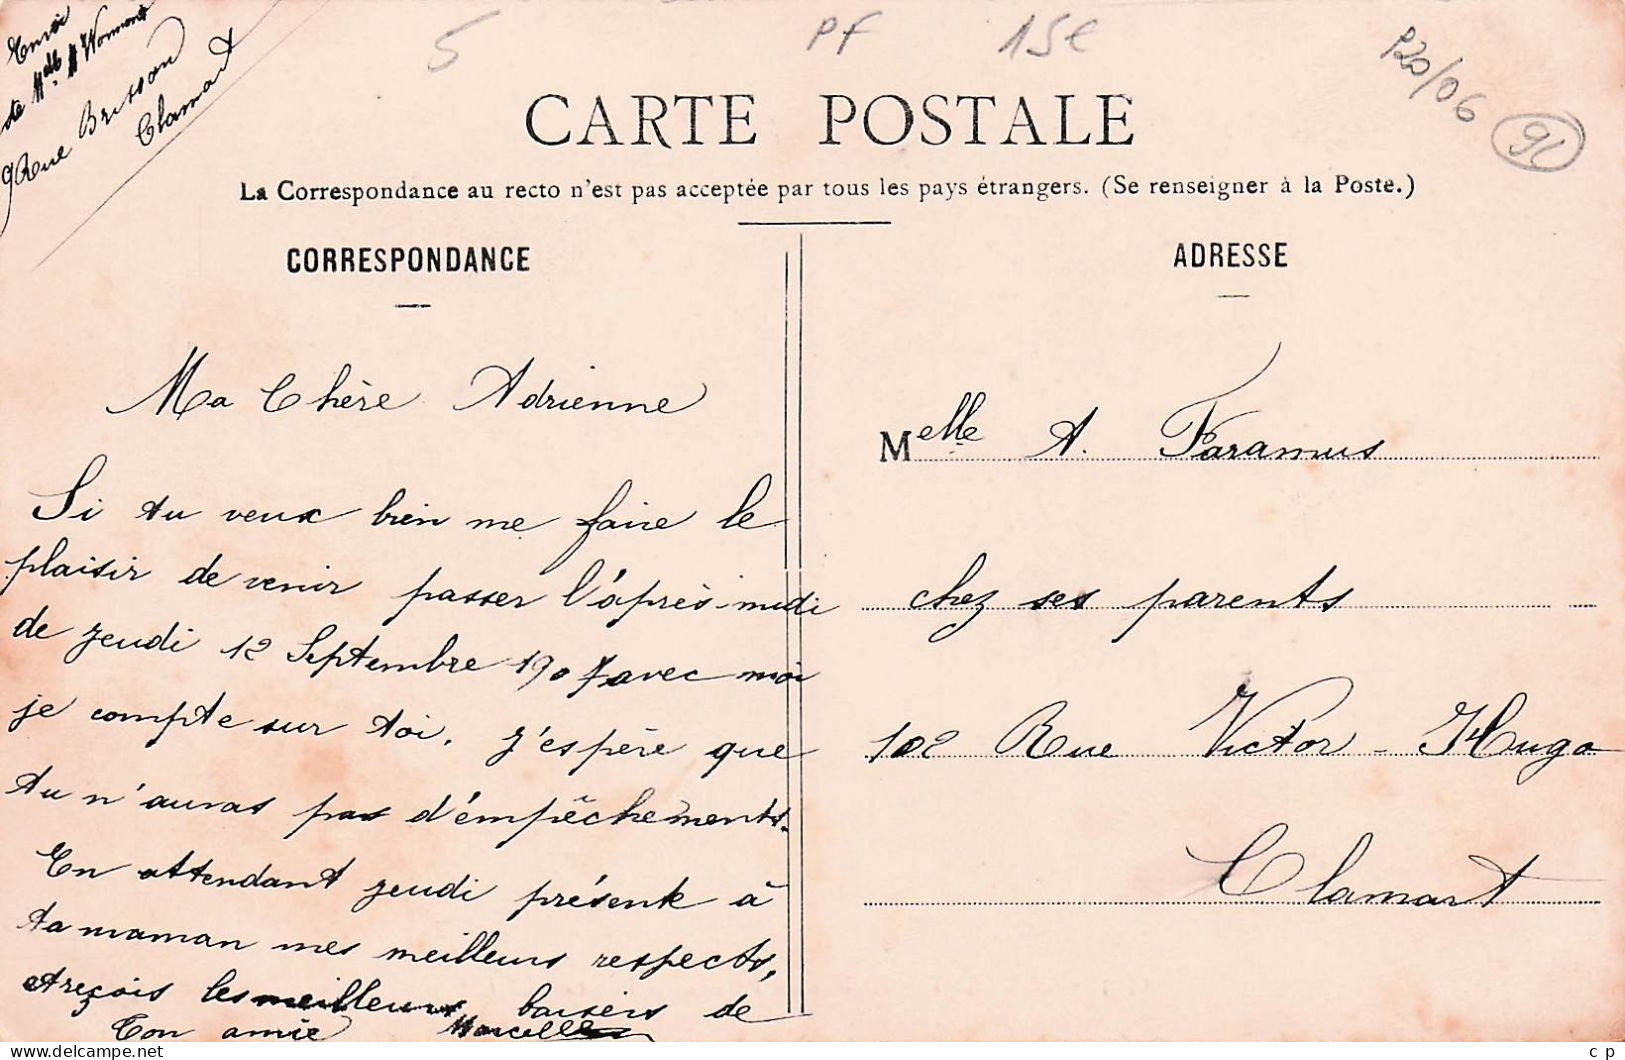 Envoi
de Melle
9 Rue Brisson
Clamart
5
PF
15e
P20/06
CARTE POSTALE
La Correspondance au recto n'est pas acceptée par tous les pays étrangers. (Se renseigner à la Poste.)
CORRESPONDANCE
Ma Chère Adrienne
Si tu veux bien me faire le
plaisir de venir passer l'après-midi
de jeudi 12 Septembre 1907 avec moi
je compte sur toi. J'espère que
tu n'auras pas d'empêchements.
En attendant jeudi présente à
ta maman mes meilleurs respects,
et reçois les meilleurs baisers de
Ton amie Marcelle
ADRESSE
Melle A. Faramus
chez ses parents
102 Rue Victor-Hugo
Clamart
delcampe.net
c p